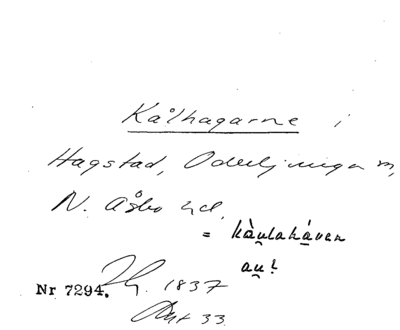 Kålhagarne i
Hagstad, Oderljunga sn,
N. Åsbo hd.
= kàu̯lahá̱ven
au̯!
Nr 7294. 1837
Akt 33.